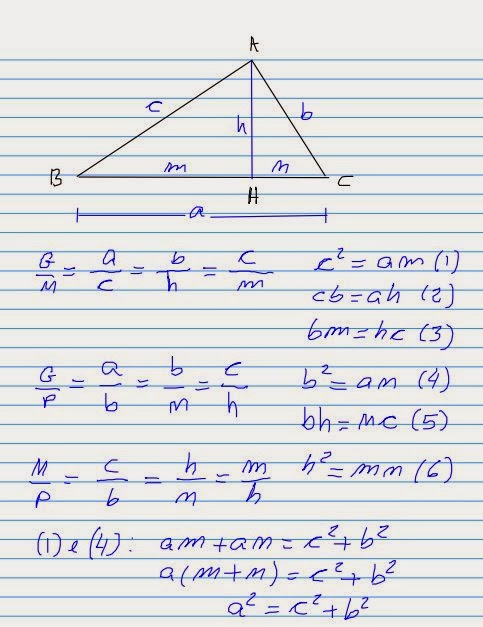 A
c
b
h
B
m
n
C
H
a
G/M = a/c = b/h = c/m
c² = am (1)
cb = ah (2)
bm = hc (3)
G/P = a/b = b/n = c/h
b² = an (4)
bh = nc (5)
M/P = c/b = h/n = m/h
h² = mn (6)
(1) e (4): am + an = c² + b²
a(m+n) = c² + b²
a² = c² + b²